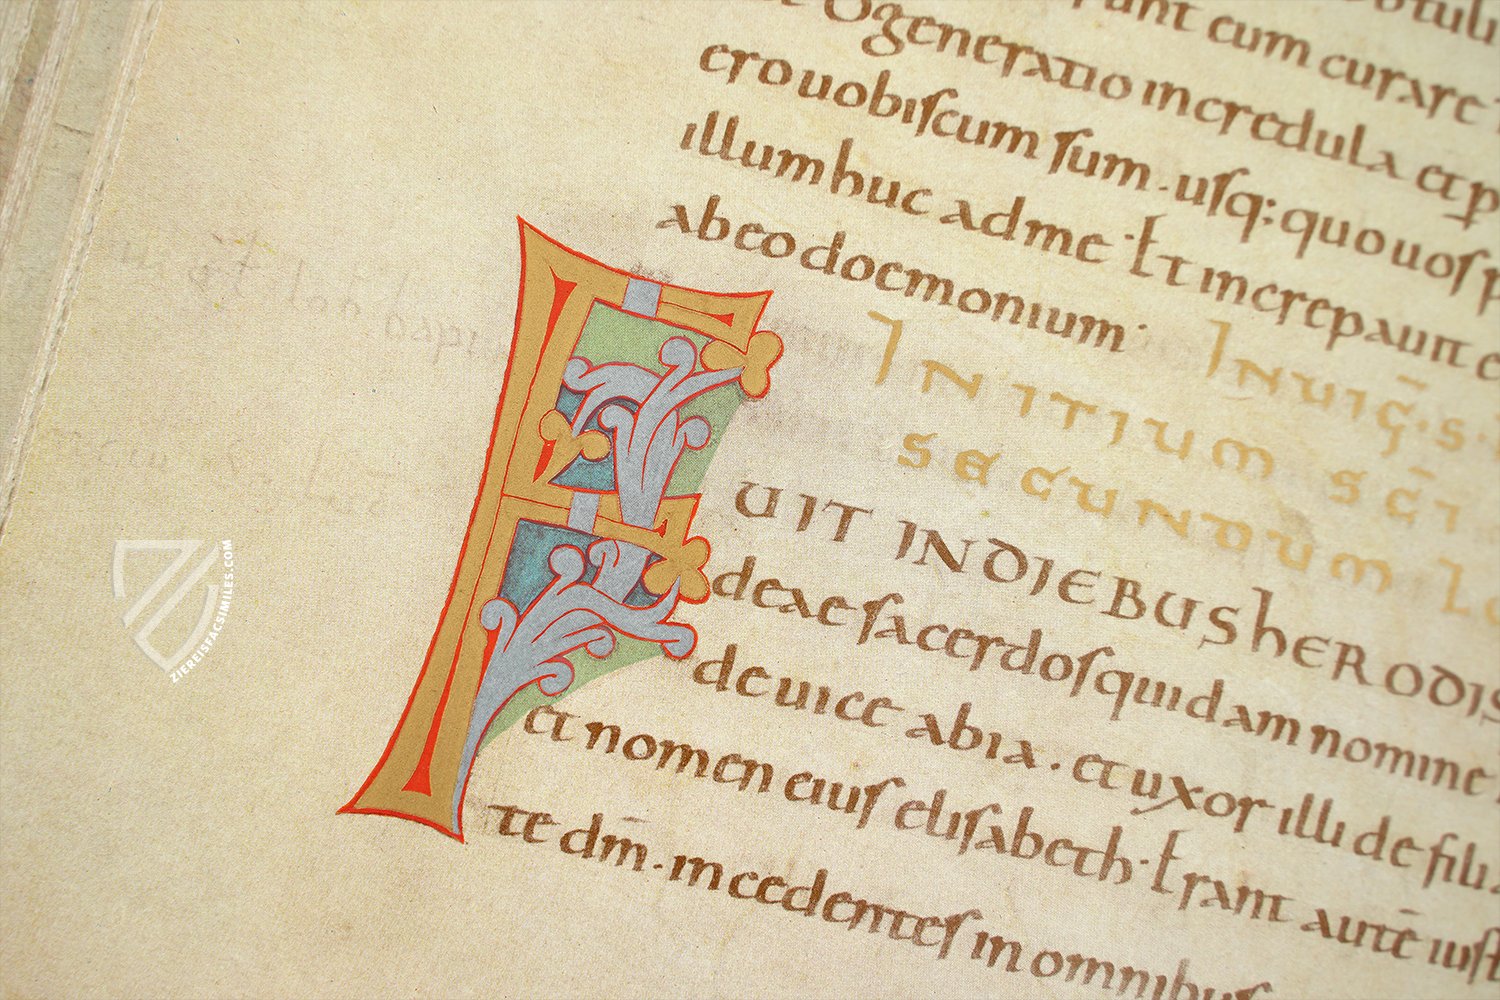 cum curare
O generatio incredula et p
ero uobiscum sum. usq: quo uos p
illum huc ad me. Et increpauit e
ab eo doemonium.
INUIḠ. S.
INITIUM SC̄I
SECUNDUM L
FUIT IN DIEBUS HERODIS
deae sacerdos quidam nomine
de uice abia. et uxor illi de fili
et nomen eius elisabeth. Erant autē iust
te dm̄. incedentes in omnibus
ZIEREISFACSIMILES.COM